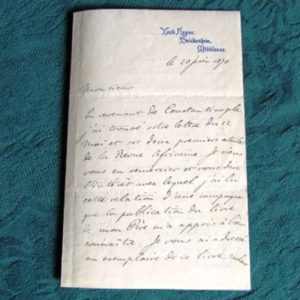 York House,
Twickenham,
Middlesex.
le 20 juin 1870
Monsieur
En revenant de Constantinople
j'ai trouvé votre lettre du 12
Mai et les deux premiers articles
de la Revue Africaine. Je viens
vous en remercier et vous dire
l'intérêt avec lequel j'ai lu
cette relation d'une campagne
que la publication du livre
de mon Père m'a appris à bien
connaître. Je vous ai adressé
un exemplaire de ce livre